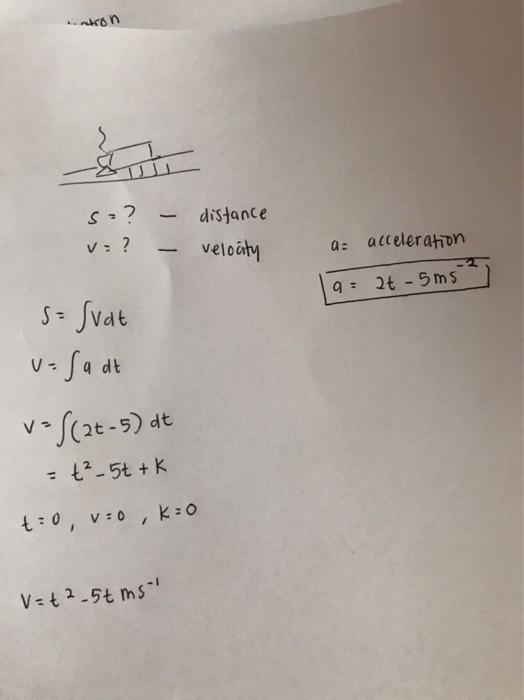 s = ? – distance
v = ? – velocity
a = acceleration
a = 2t - 5 ms⁻²
S = ∫vdt
v = ∫a dt
v = ∫(2t-5) dt
= t² - 5t + K
t = 0, v = 0, K = 0
V = t² - 5t ms⁻¹